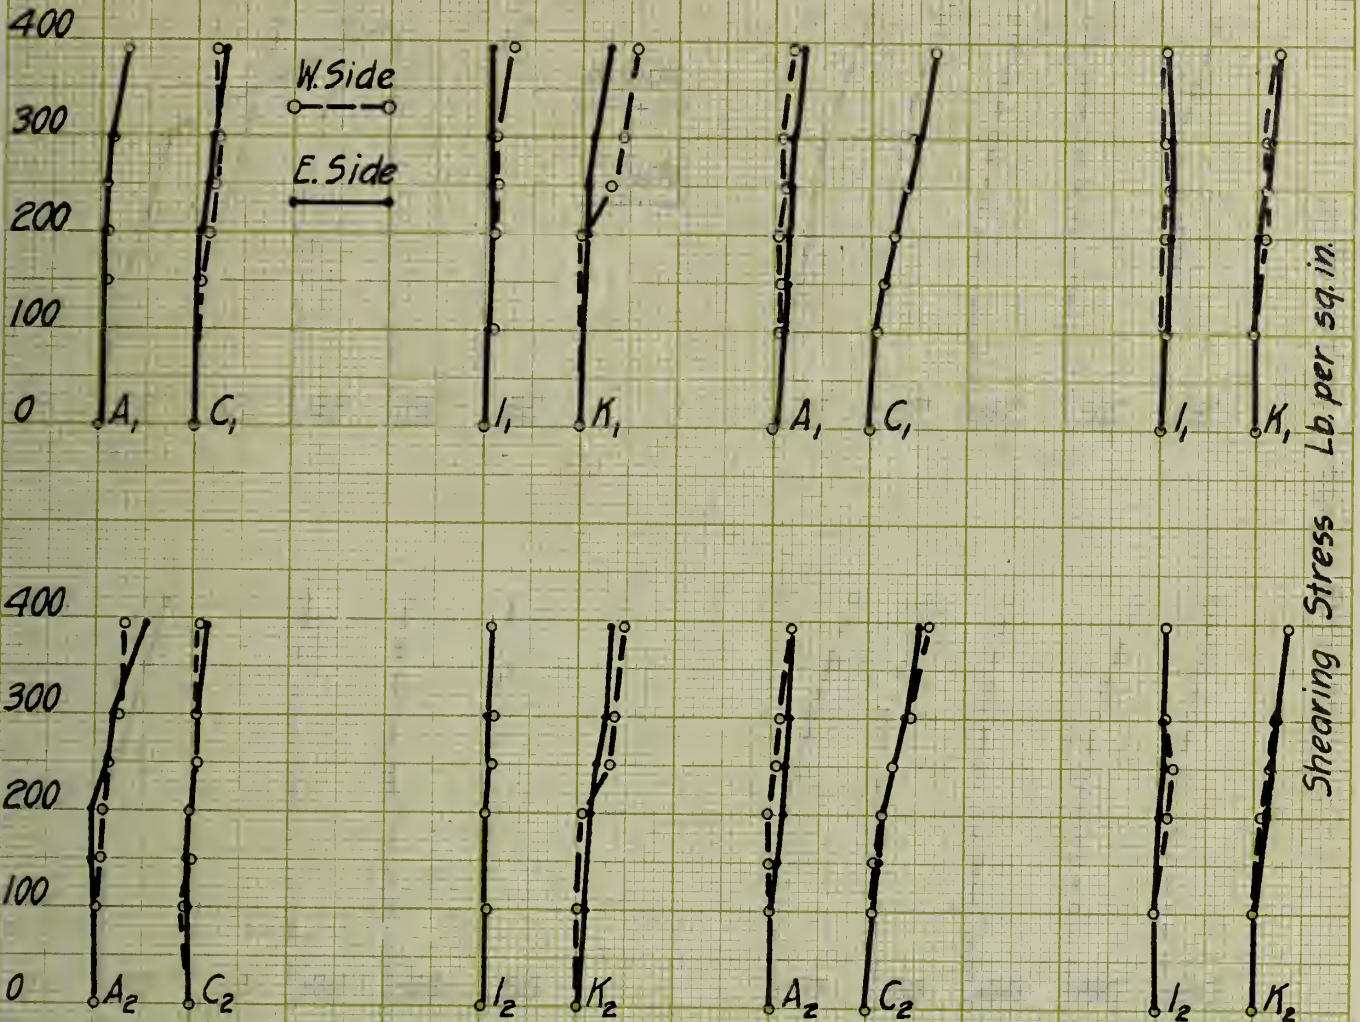 400
W. Side
300
E. Side
200
100
0 A₁ C₁ I₁ K₁ A₁ C₁ I₁ K₁
400
300
200
100
0 A₂ C₂ I₂ K₂ A₂ C₂ I₂ K₂
Shearing Stress Lb. per sq. in.